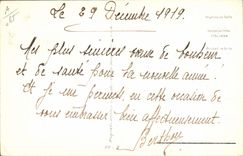 Le 29 Décembre 1919.
Mes plus sincères vœux de bonheur
et de santé pour la nouvelle année
Et je me permets, en cette occasion de
vous embrasser bien affectueusement
Berthe